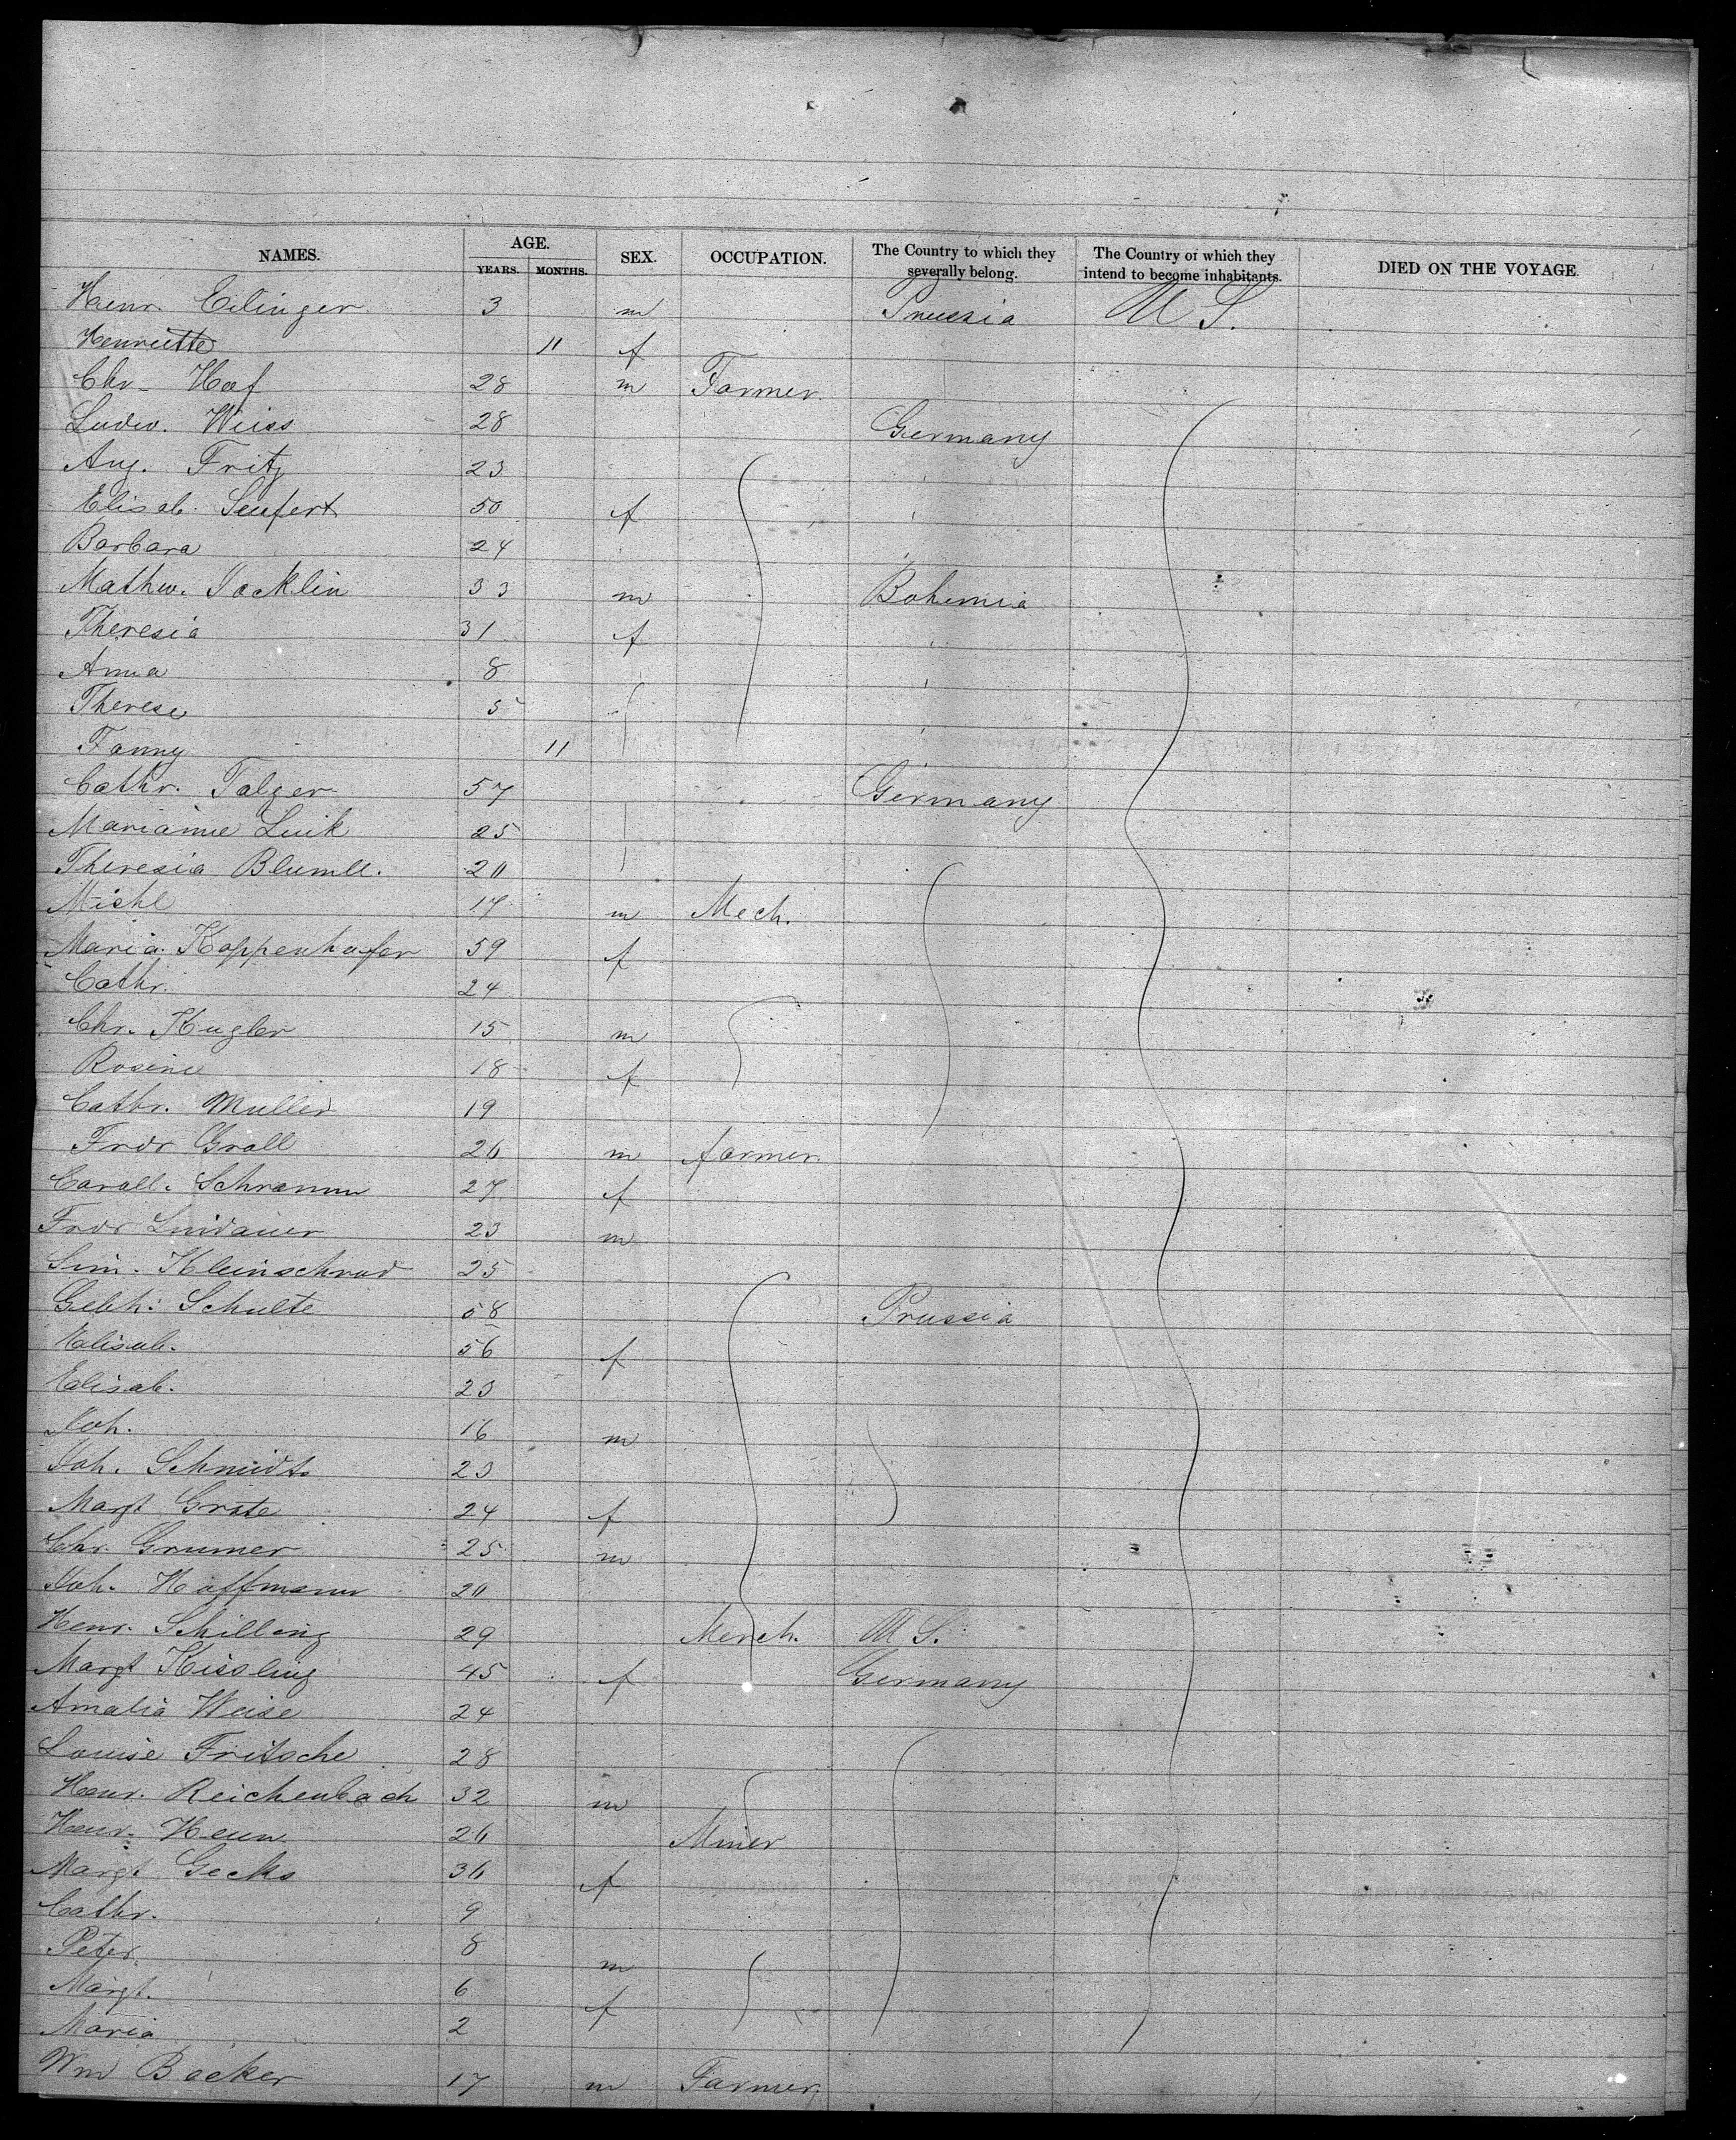 NAMES. AGE. SEX. OCCUPATION. The Country to which they severally belong. The Country of which they intend to become inhabitants. DIED ON THE VOYAGE.
YEARS. MONTHS.
Henr. Eilinger 3 m Prussia U S.
Henriette 11 f
Chr. Haf 28 m Farmer.
Ludw. Weiss 28 Germany
Aug. Fritz 23
Elisab. Seufert 50 f
Barbara 24
Mathw. Jocklin 33 m Bohemia
Theresia 31 f
Anna 8
Therese 5
Fanny 11
Cathr. Talger 57 Germany
Marianne Luik 25
Theresia Blumll. 20
Michl 17 m Mech.
Maria Koppenhofer 59 f
Cathr. 24
Chr. Kugler 15 m
Rosine 18 f
Cathr. Muller 19
Fredr Grall 26 m farmer.
Caroll. Schramm 27 f
Fredr Lindauer 23 m
Sim. Kleinschrod 25
Gebh: Schulte 58 Prussia
Elisab. 56 f
Elisab. 23
Joh. 16 m
Joh. Schmidt 23
Margt Grote 24 f
Chr. Grumer 25 m
Joh. Hoffmann 20
Henr. Schilling 29 Merch. U S.
Margt Kissling 45 f Germany
Amalia Weise 24
Louise Fritsche 28
Henr. Reichenbach 32 m
Henr. Heun 26 Miner
Margt Gecks 36 f
Cathr. 9
Peter 8 m
Margt. 6 f
Maria 2
Wm Backer 17 m Farmer.